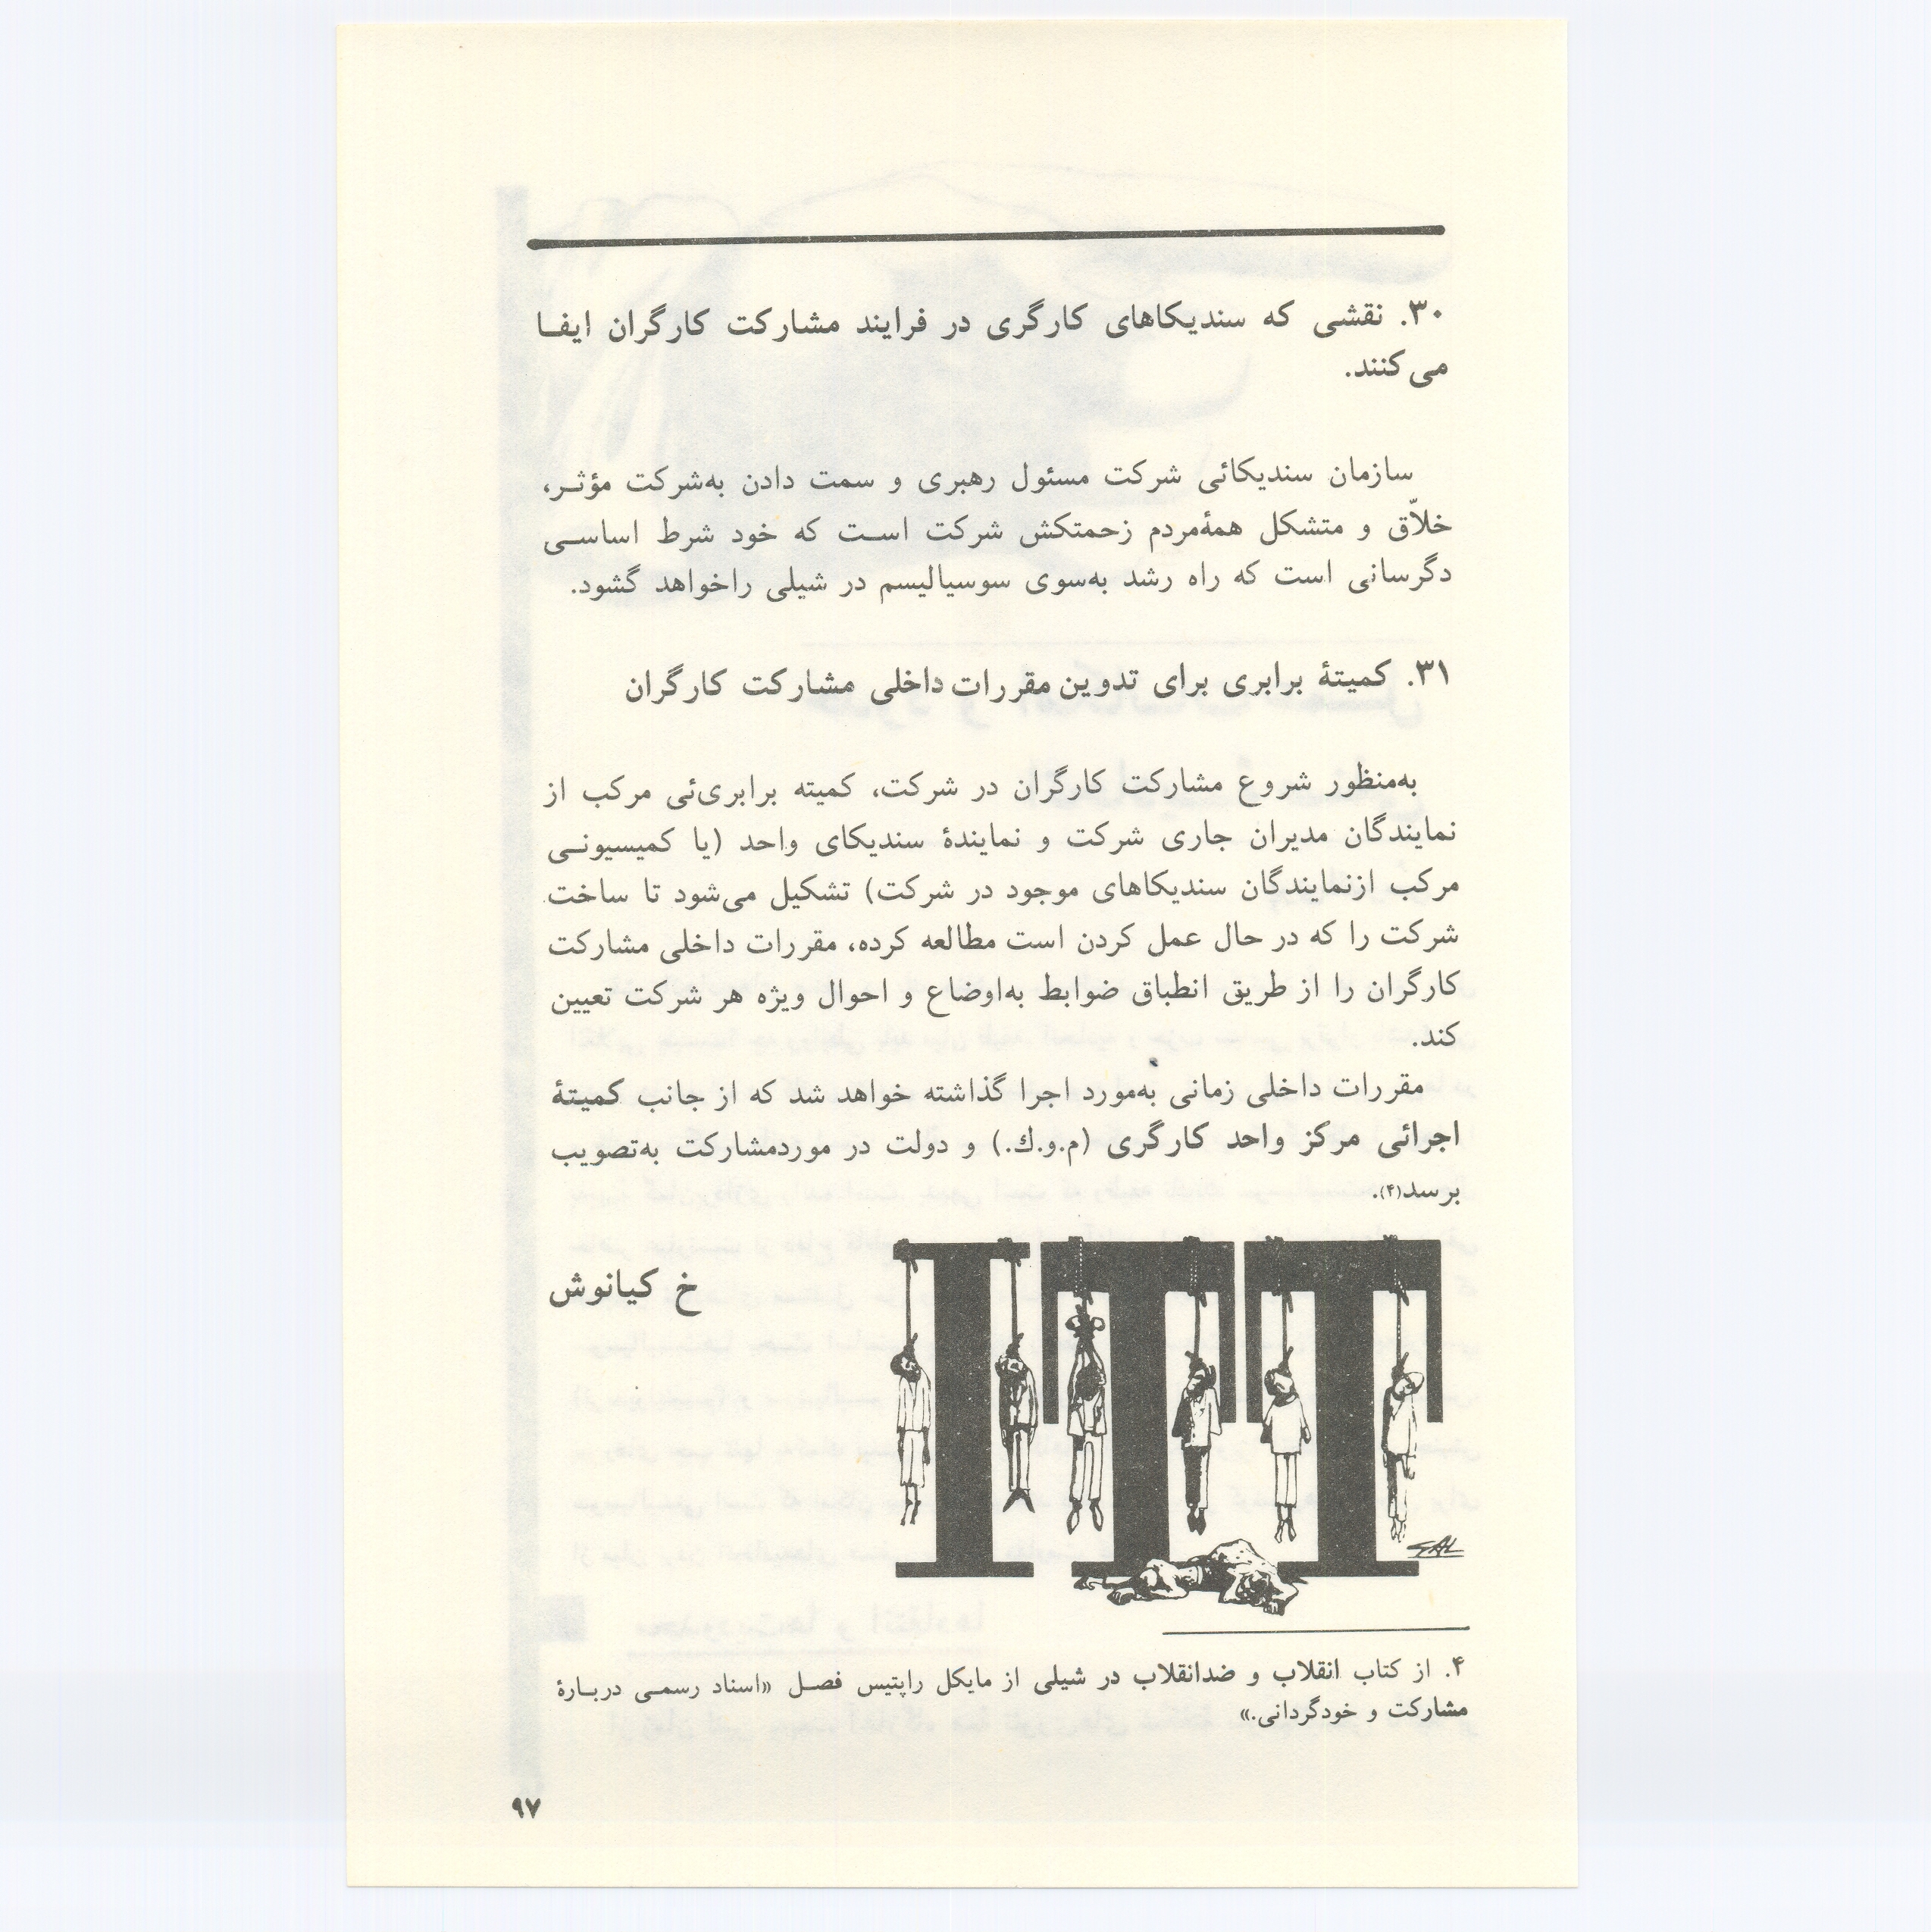 ۳۰. نقشی که سندیکاهای کارگری در فرایند مشارکت کارگران ایفــا
می‌کنند.
سازمان سندیکائی شرکت مسئول رهبری و سمت دادن به‌شرکت مؤثــر،
خلاّق و متشکل همهٔ‌مردم زحمتکش شرکت اســت که خود شرط اساســی
دگرسانی است که راه رشد به‌سوی سوسیالیسم در شیلی راخواهد گشود.
۳۱. کمیتهٔ برابری برای تدوین مقررات داخلی مشارکت کارگران
به‌منظور شروع مشارکت کارگران در شرکت، کمیته برابری‌ئی مرکب از
نمایندگان مدیران جاری شرکت و نمایندهٔ سندیکای واحد (یا کمیسیونــی
مرکب ازنمایندگان سندیکاهای موجود در شرکت) تشکیل می‌شود تا ساخت
شرکت را که در حال عمل کردن است مطالعه کرده، مقررات داخلی مشارکت
کارگران را از طریق انطباق ضوابط به‌اوضاع و احوال ویژه هر شرکت تعیین
کند.
مقررات داخلی زمانی به‌مورد اجرا گذاشته خواهد شد که از جانب کمیتهٔ
اجرائی مرکز واحد کارگری (م.و.ك.) و دولت در موردمشارکت به‌تصویب
برسد(۴).
خ کیانوش
ITT
GAL
۴. از کتاب انقلاب و ضدانقلاب در شیلی از مایکل راپتیس فصــل «اسناد رسمــی دربــارهٔ
مشارکت و خودگردانی.»
۹۷